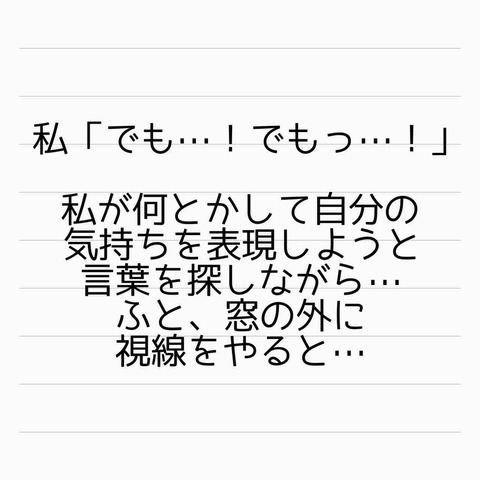 私「でも…！でもっ…！」
私が何とかして自分の
気持ちを表現しようと
言葉を探しながら…
ふと、窓の外に
視線をやると…